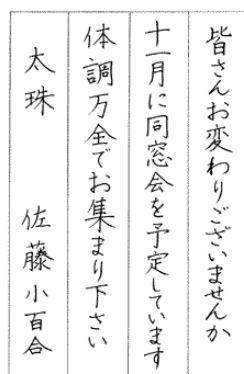 皆さんお変わりございませんか
十一月に同窓会を予定しています
体調万全でお集まり下さい
太珠 佐藤小百合